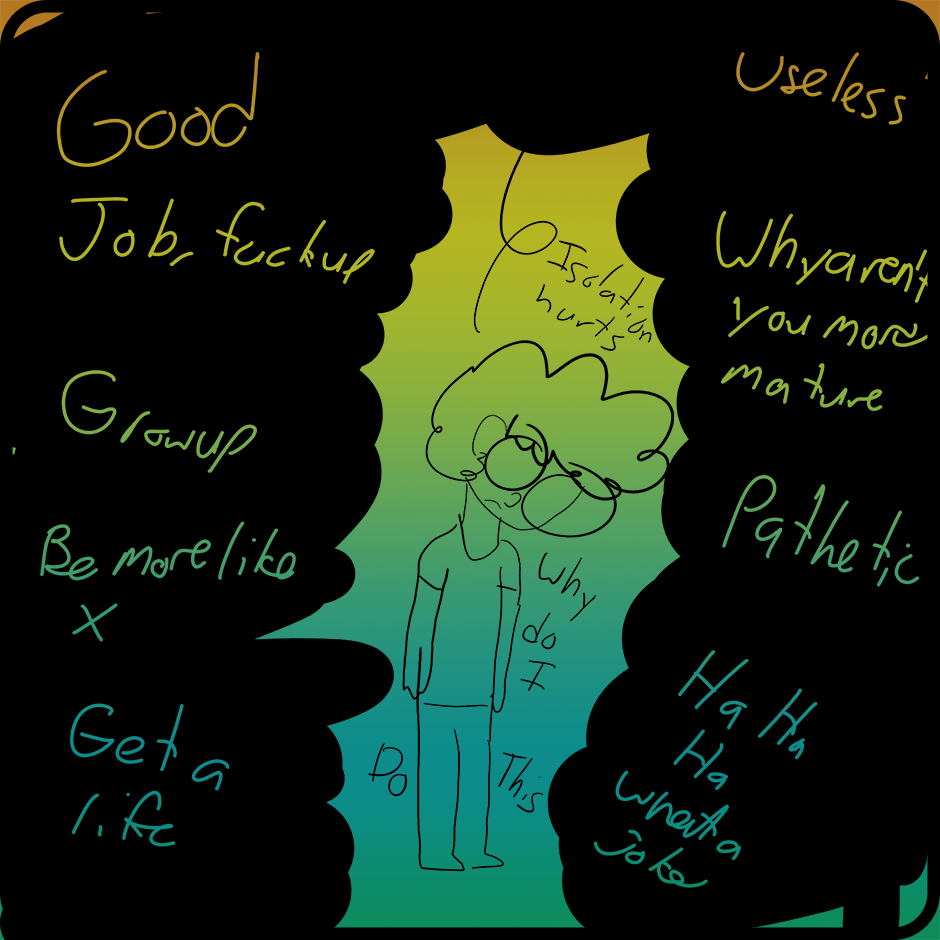 Good
Job, fuckup
Grow up
Be more like
X
Get a
life
Isolation
hurts
Why
do
I
Do
This
Useless
Why aren't
you more
mature
Pathetic
Ha Ha
Ha
what a
joke